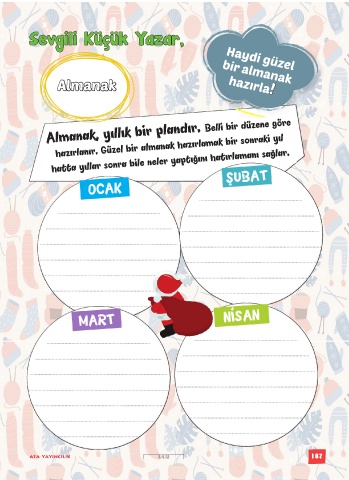 Sevgili Küçük Yazar,
Haydi güzel
bir almanak
hazırla!
Almanak
Almanak, yıllık bir plandır. Belli bir düzene göre
hazırlanır. Güzel bir almanak hazırlamak bir sonraki yıl
hatta yıllar sonra bile neler yaptığını hatırlamanı sağlar.
OCAK
ŞUBAT
MART
NİSAN
ATA YAYINCILIK
187